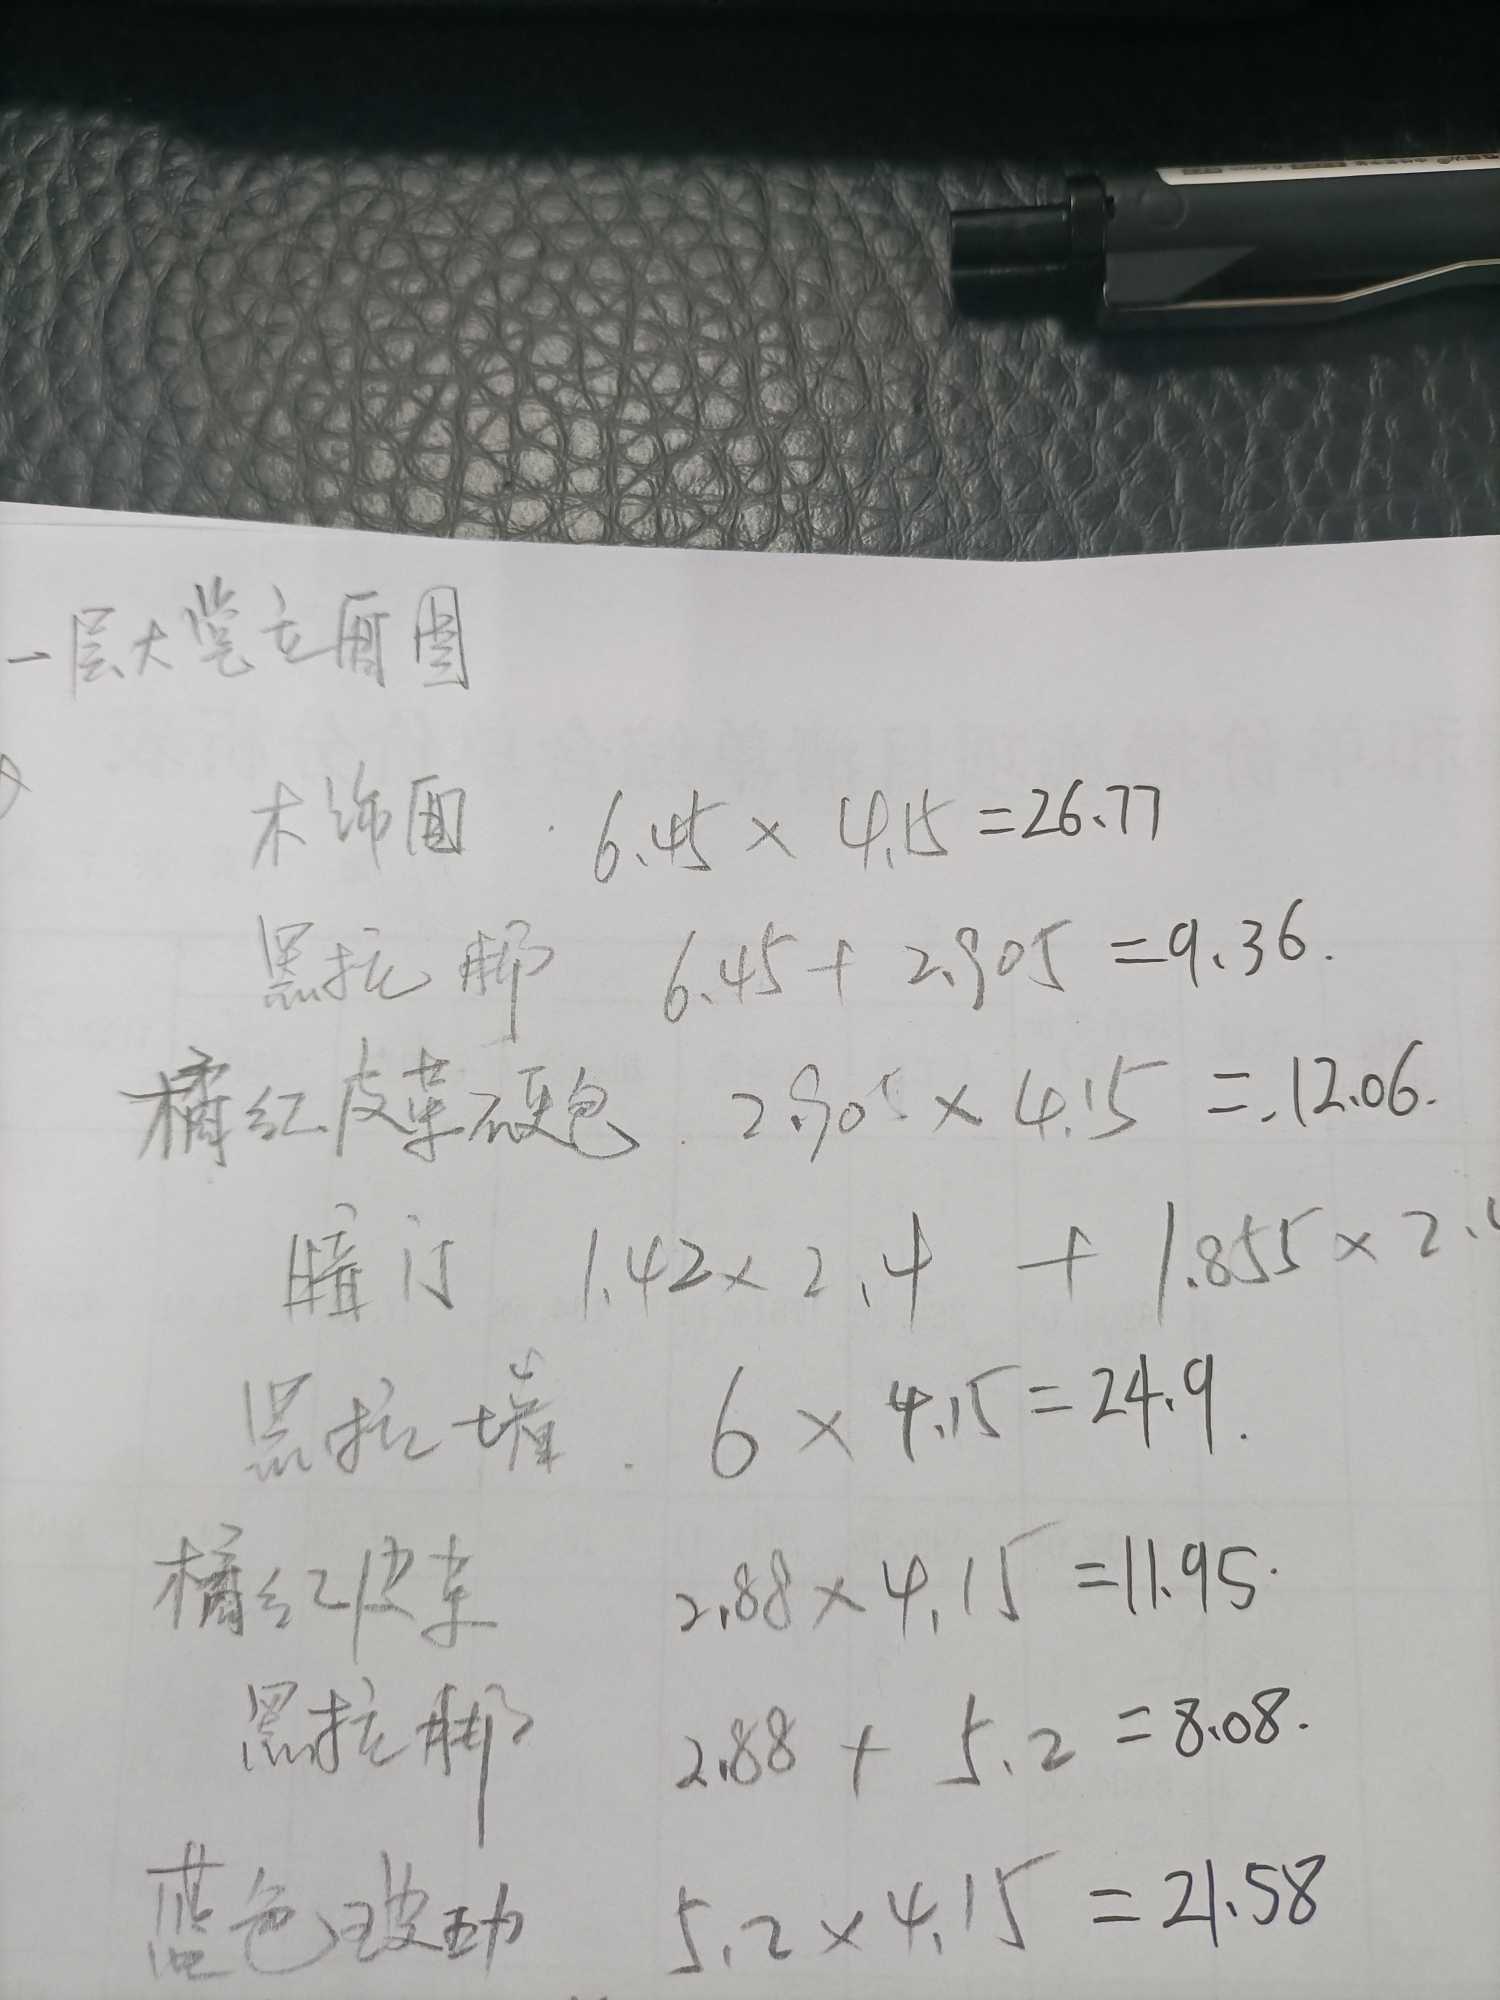 一层大堂立面图
木饰面 6.45 × 4.15 =26.77
黑拉脚 6.45 + 2.905 =9.36.
橘红皮革硬包 2.905 × 4.15 =.12.06.
暗门 1.42 × 2.4 + 1.855 × 2.
黑拉墙 6 × 4.15 =24.9.
橘红皮革 2.88 × 4.15 =11.95.
黑拉脚 2.88 + 5.2 =8.08.
蓝色玻 5.2 × 4.15 =21.58